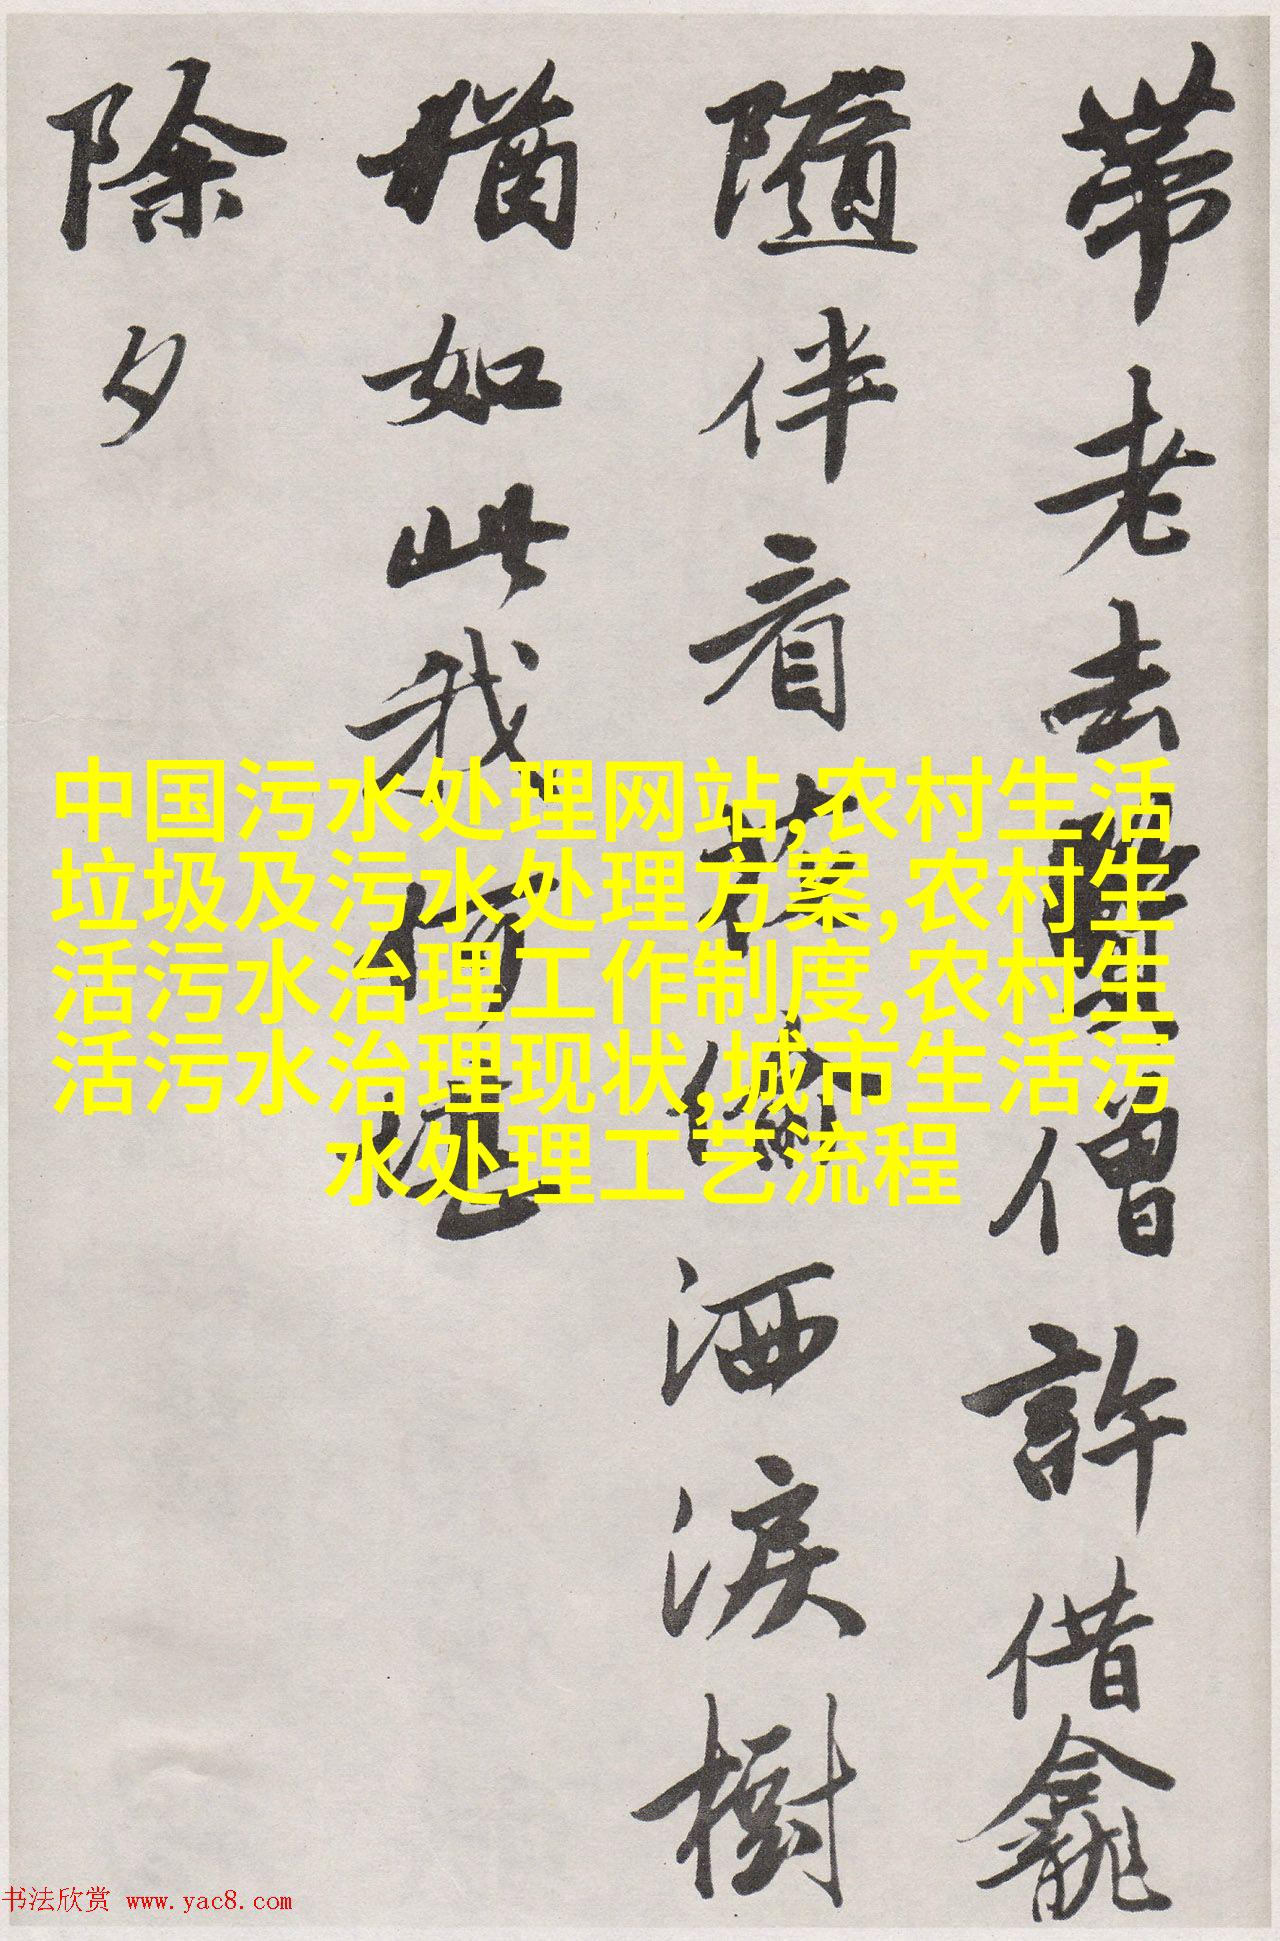 帶老去僧許借龕
隨伴看偷洒淚樹
猶如此我何堪
除夕
中国污水处理网站,农村生活
垃圾及污水处理方案,农村生
活污水治理工作制度,农村生
活污水治理现状,城市生活污
水处理工艺流程
书法欣赏 www.yac8.com